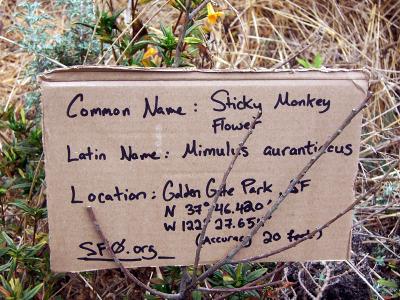 Common Name: Sticky Monkey
Flower
Latin Name: Mimulus aurantiacus
Location: Golden Gate Park SF
N 37° 46.420'
W 122° 27.65
(Accuracy 20 feet)
SFØ.org